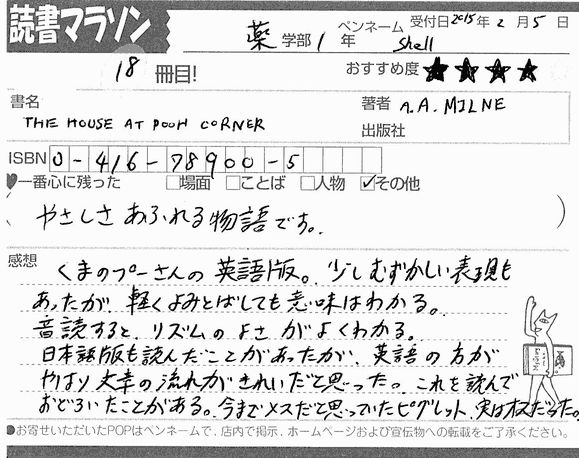 読書マラソン
薬 学部 1 年 ペンネーム shell 受付日2015年2月5日
18 冊目! おすすめ度 ★★★★
書名 THE HOUSE AT POOH CORNER
著者 A.A. MILNE
出版社
ISBN 0-416-78900-5
♥一番心に残った □場面 □ことば □人物 ☑その他
(やさしさあふれる物語です。)
感想
くまのプーさんの英語版。少しむずかしい表現も
あったが、軽くよみとばしても意味はわかる。
音読すると、リズムのよさがよくわかる。
日本語版も読んだことがあったが、英語の方が
やはり文章の流れがきれいだと思った。これを読んで
おどろいたことがある。今までメスだと思っていたピグレット、実はオスだった。
●お寄せいただいたPOPはペンネームで、店内で掲示、ホームページおよび宣伝物への転載をご了承ください。